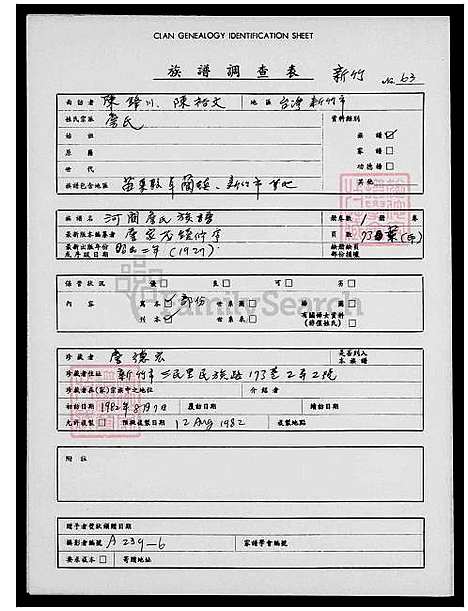 CLAN GENEALOGY IDENTIFICATION SHEET
族譜調查表 新竹 No. 63
訪者 陳 川、陳裕文 地區 台灣新竹市
姓氏宗派 詹氏 資料類別
始祖 族譜 ✓
原籍 家譜 □
世代 功德榜 □
族譜包含地區 苗栗縣卓蘭鎮、新竹市 其他
族譜名 河間詹氏族譜 冊卷數 1 冊 卷
最新版本編纂者 詹家 修 頁數 73 葉
最新出版年份或序跋日期 昭和二年(1927)
保管狀況 優 □ 良 □ 可 □ 劣 □
內容 寫本 部份 世系圖 □ 繪圖 □
刊本 世系表 □ 有關婦女資料
FamilySearch
珍藏者 詹德 是否列入本族譜
珍藏者住址 新竹市三民里民族路173巷2弄2號
珍藏者在(家)宗族中之地位 介紹者
初訪日期 1982年8月7日 覆訪日期 續訪日期
允許複製 □ 預擬複製日期 12 Aug 1982 複製地點
附註
贈予者獎狀頒贈日期
攝影者編號 A 239-6 家譜學會編號
要求副本 □ 寄贈地址